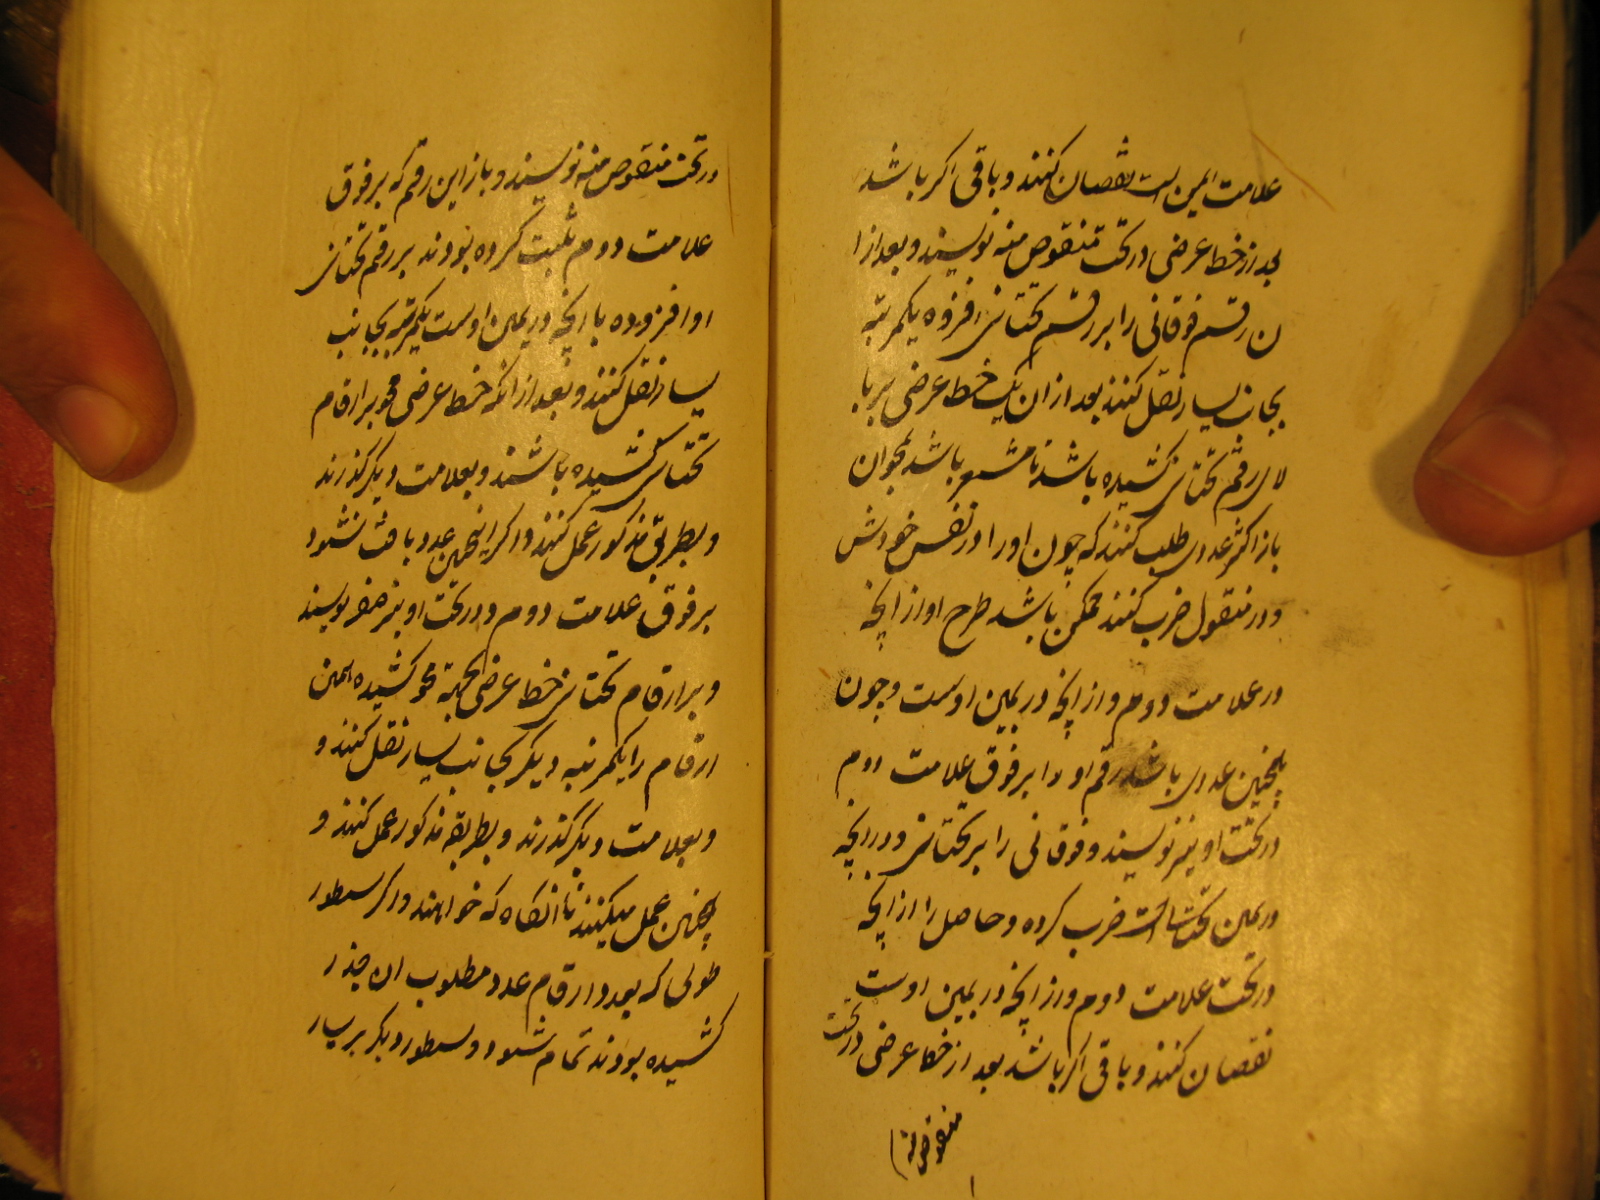 علامت ایمن است نقصان کنند و باقی اکر باشد
بعد از خط عرضی در تحت منقوص منه نویسند و بعد از ا
ن رقم فوقانی را بر رقم تحتانی افزوده یکمرتبه
بجانب یسار نقل کنند بعد از ان یک خط عرضی بر با
لای رقم تحتانی کشیده باشد تا مشعر باشد بمحو ان
باز اکثر عددی طلب کنند که چون او را در نفس خودش
و در منقول ضرب کنند ممکن باشد طرح او از انچه
در علامت دوم و از انچه در یمین اوست و چون
بچنین عددی باشد رقم او را بر فوق علامت دوم
در تحت او نیز نویسند و فوقانی را بر تحتانی و در انچه
در یمین تحتانی است ضرب کرده و حاصل را از انچه
در تحت علامت دوم و از انچه در یمین اوست
نقصان کنند و باقی اکر باشد بعد از خط عرضی در تحت
منقوص منه
در تحت منقوص منه نویسند و باز این رقم که بر فوق
علامت دوم ثبت کرده بودند بر رقم تحتانی
او افزوده با انچه در یمین اوست یکمرتبه بجانب
یسار نقل کنند و بعد از انکه خط عرضی محو بر ارقام
تحتانی کشیده باشند و بعلامت دیکر کذرند
و بطریق مذکور عمل کنند و اکر اینچنین عدد یافت نشود
بر فوق علامت دوم و در تحت او نیز صفر نویسند
و بر ارقام تحتانی خط عرضی بجهة محو کشیده همین
ارقام را یکمرتبه دیکر بجانب یسار نقل کنند و
و بعلامت دیکر کذرند و بطریقه مذکور عمل کنند و
بچنین عمل میکنند تا انکاه که خواهند و اکر سطور
طولی که بعدد ارقام عدد مطلوب ان جذر
کشیده بودند تمام شود و سطور دیکر بر یسار